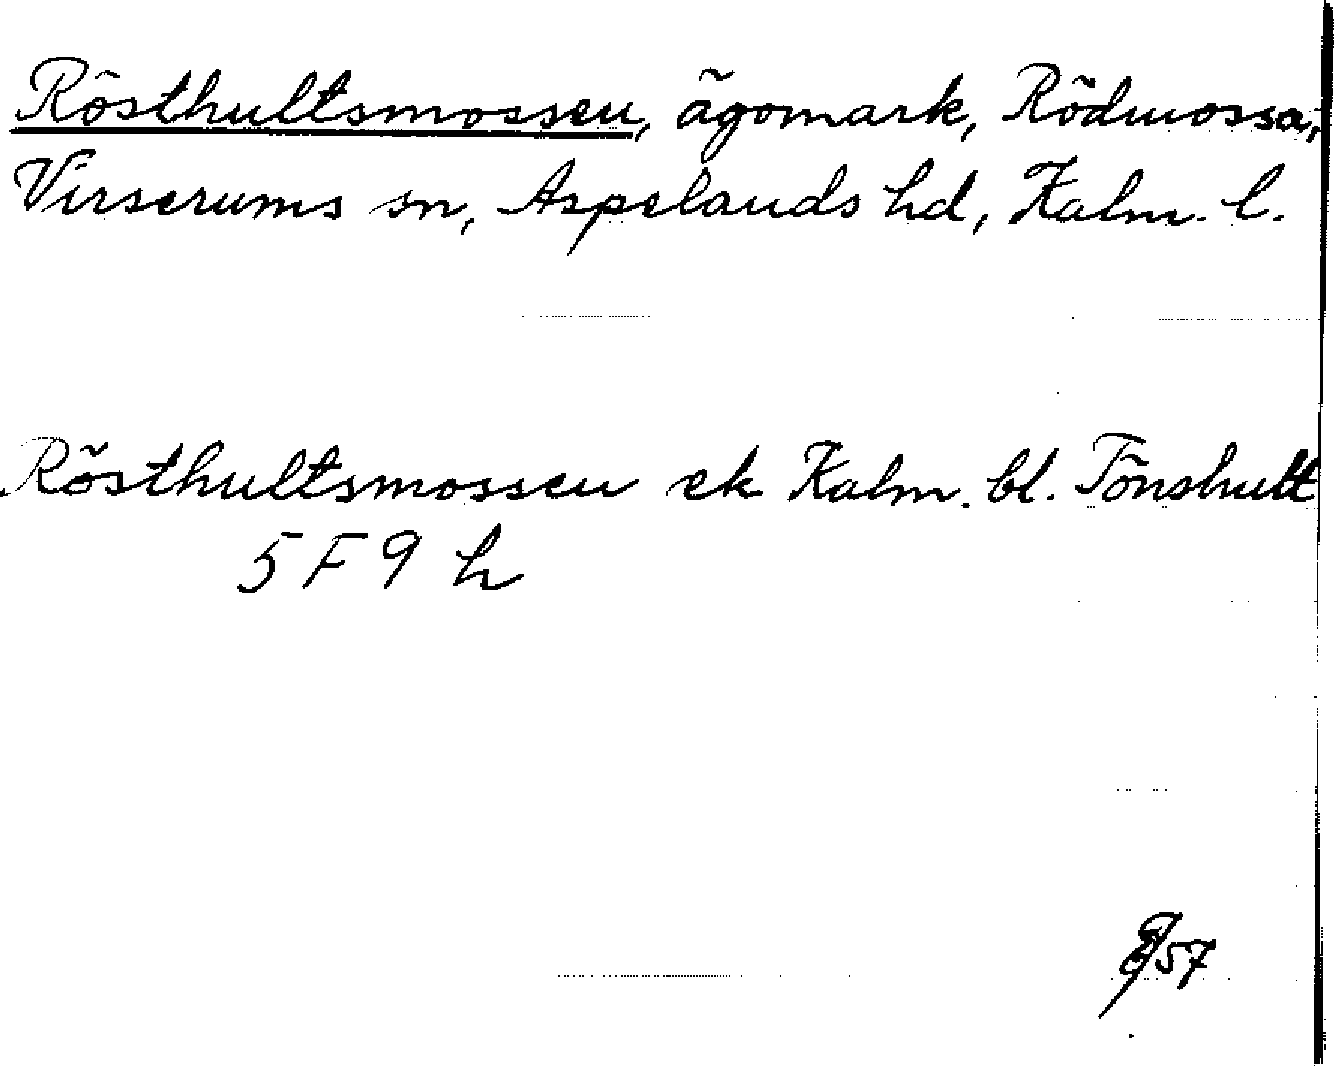 Rösthultsmossen, ägomark, Rödmossa,
Virserums sn, Aspelands hd, Kalm. l.
Rösthultsmossen ek Kalm. bl. Tönshult
5 F 9 h
57